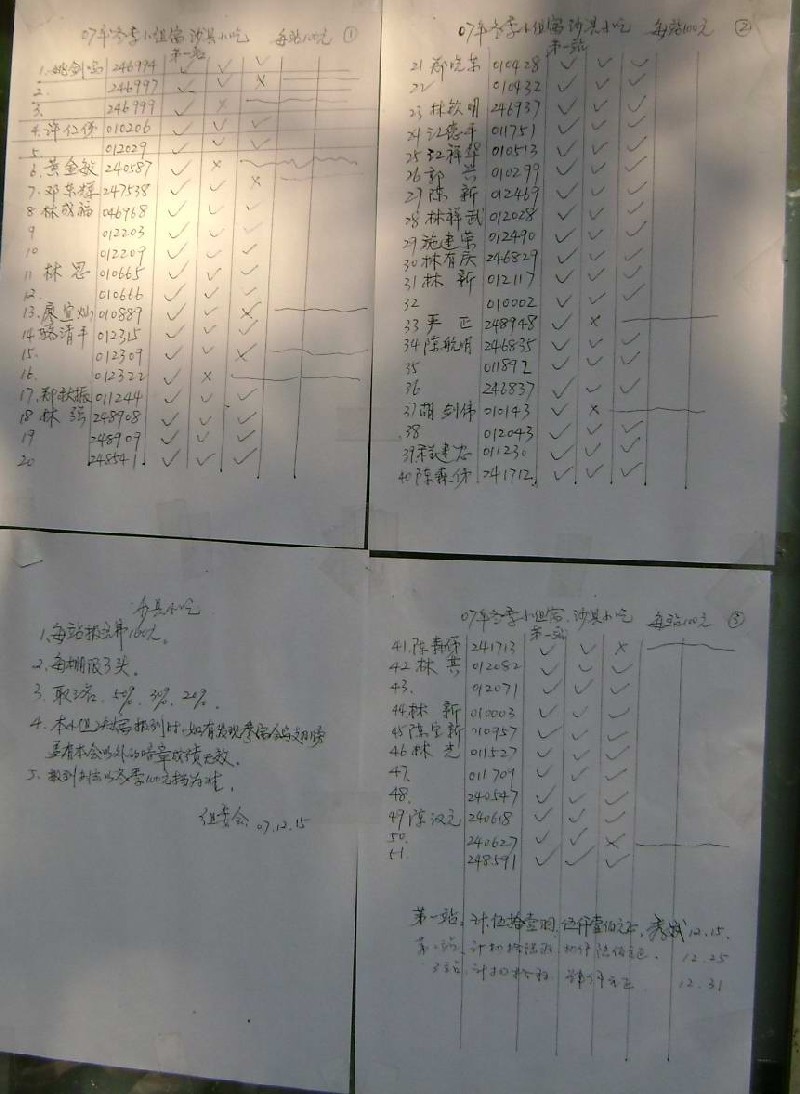 07年冬季小组窝 沙县小吃 每站100元 ①
第一站
1. 姚剑鸣 246994 ✓ ✓ ✓
2. 246997 ✓ ✓ ×
3. 246999 ✓ ×
4. 许仁俤 010206 ✓ ✓ ✓
5 012029 ✓ ✓ ✓
6. 黄金敏 240587 ✓ ×
7. 邓荣辉 247538 ✓ ✓ ×
8 林成福 046968 ✓ ✓ ✓
9 012203 ✓ ✓ ✓
10 012209 ✓ ✓ ✓
11 林思 010665 ✓ ✓ ✓
12. 010666 ✓ ✓ ✓
13. 廖宜灿 010889 ✓ ✓ ×
14 清平 012315 ✓ ✓ ✓
15. 012309 ✓ ✓ ×
16. 012322 ✓ ×
17. 郑秋振 011244 ✓ ✓ ✓
18 林强 248908 ✓ ✓ ✓
19 248909 ✓ ✓ ✓
20 248541 ✓ ✓ ✓
07年冬季小组窝 沙县小吃 每站100元 ②
第一站
21 郑晓荣 010428 ✓ ✓ ✓
22 010432 ✓ ✓ ✓
23 林钦明 246937 ✓ ✓ ✓
24 江德平 011751 ✓ ✓ ✓
25 江祥华 010513 ✓ ✓ ✓
26 郭兴 010299 ✓ ✓ ✓
27 陈新 012469 ✓ ✓ ✓
28 林祥武 012028 ✓ ✓ ✓
29 施建荣 012490 ✓ ✓ ✓
30 林有庆 246829 ✓ ✓ ✓
31 林新 012117 ✓ ✓ ✓
32 010002 ✓ ✓ ✓
33 严正 248948 ✓ ×
34 陈航明 246835 ✓ ✓ ✓
35 011892 ✓ ✓ ✓
36 246837 ✓ ✓ ✓
37 胡剑伟 010143 ✓ ×
38 012043 ✓ ✓ ✓
39 建忠 011230 ✓ ✓ ✓
40 陈森俤 241712 ✓ ✓ ✓
沙县小吃
1. 每站报名费100元。
2. 每棚限3头。
3. 取3名. 50%. 30%. 20%.
4. 本小组 报到时,如有发现
有本会以外的暗章成绩无效。
5. 报到 以冬季100元档为准.
组委会 07.12.15
07年冬季小组窝. 沙县小吃 每站100元 ③
第一站
41. 陈森俤 241713 ✓ ✓ ×
42 林共 012082 ✓ ✓ ✓
43. 012071 ✓ ✓ ✓
44 林新 010003 ✓ ✓ ✓
45 陈宝新 210957 ✓ ✓ ✓
46 林光 011527 ✓ ✓ ✓
47. 011709 ✓ ✓ ✓
48. 240547 ✓ ✓ ✓
49 陈汉元 240618 ✓ ✓ ✓
50. 240627 ✓ ✓ ×
51. 248591 ✓ ✓ ✓
第一站. 计伍拾壹羽. 伍仟壹佰元正. 12.15.
第二站. 计 12.25
3站. 计 12.31